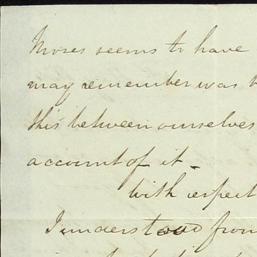 Moses seems to have
may remember was
this between ourselves
account of it -
with respect
I understood from